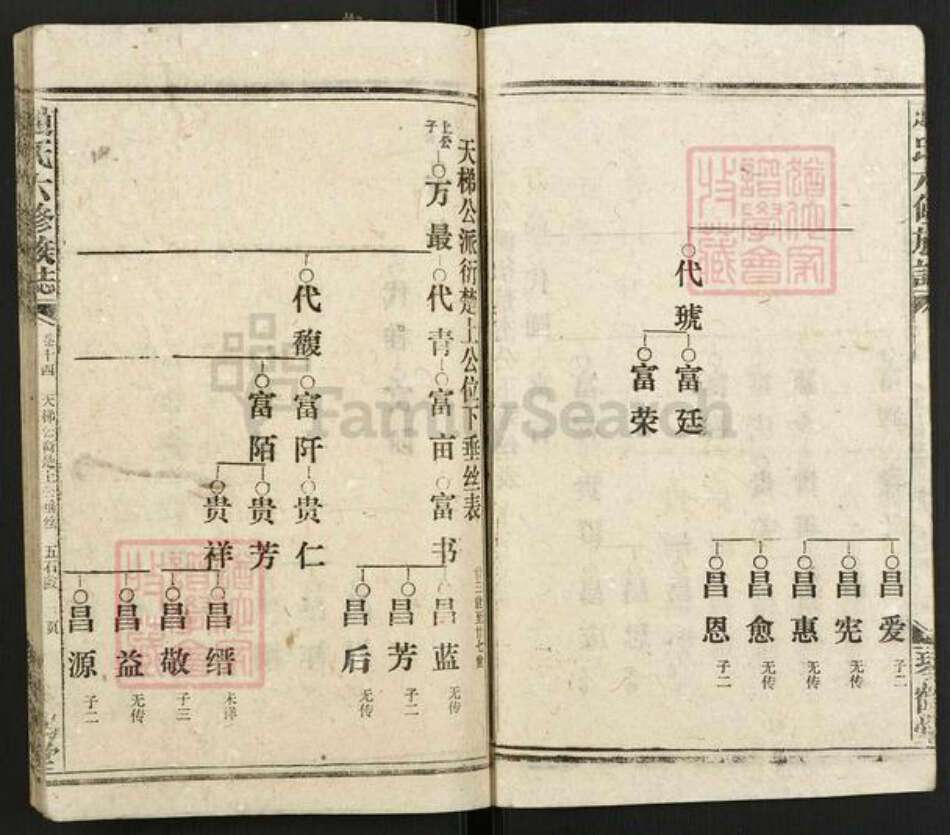 代琥
富廷
富荣
昌爱
子二
昌宪
无传
昌惠
无传
昌愈
无传
昌恩
子二
天梯公派衍楚上公位下垂丝表
上公子
万最
代青
富亩
富书
昌蓝
无传
昌芳
子二
昌后
无传
代馥
富阡
贵仁
富陌
贵芳
贵祥
昌缙
未详
昌敬
子三
昌益
无传
昌源
子二
氏六修族志
卷十四
五石
页
FamilySearch